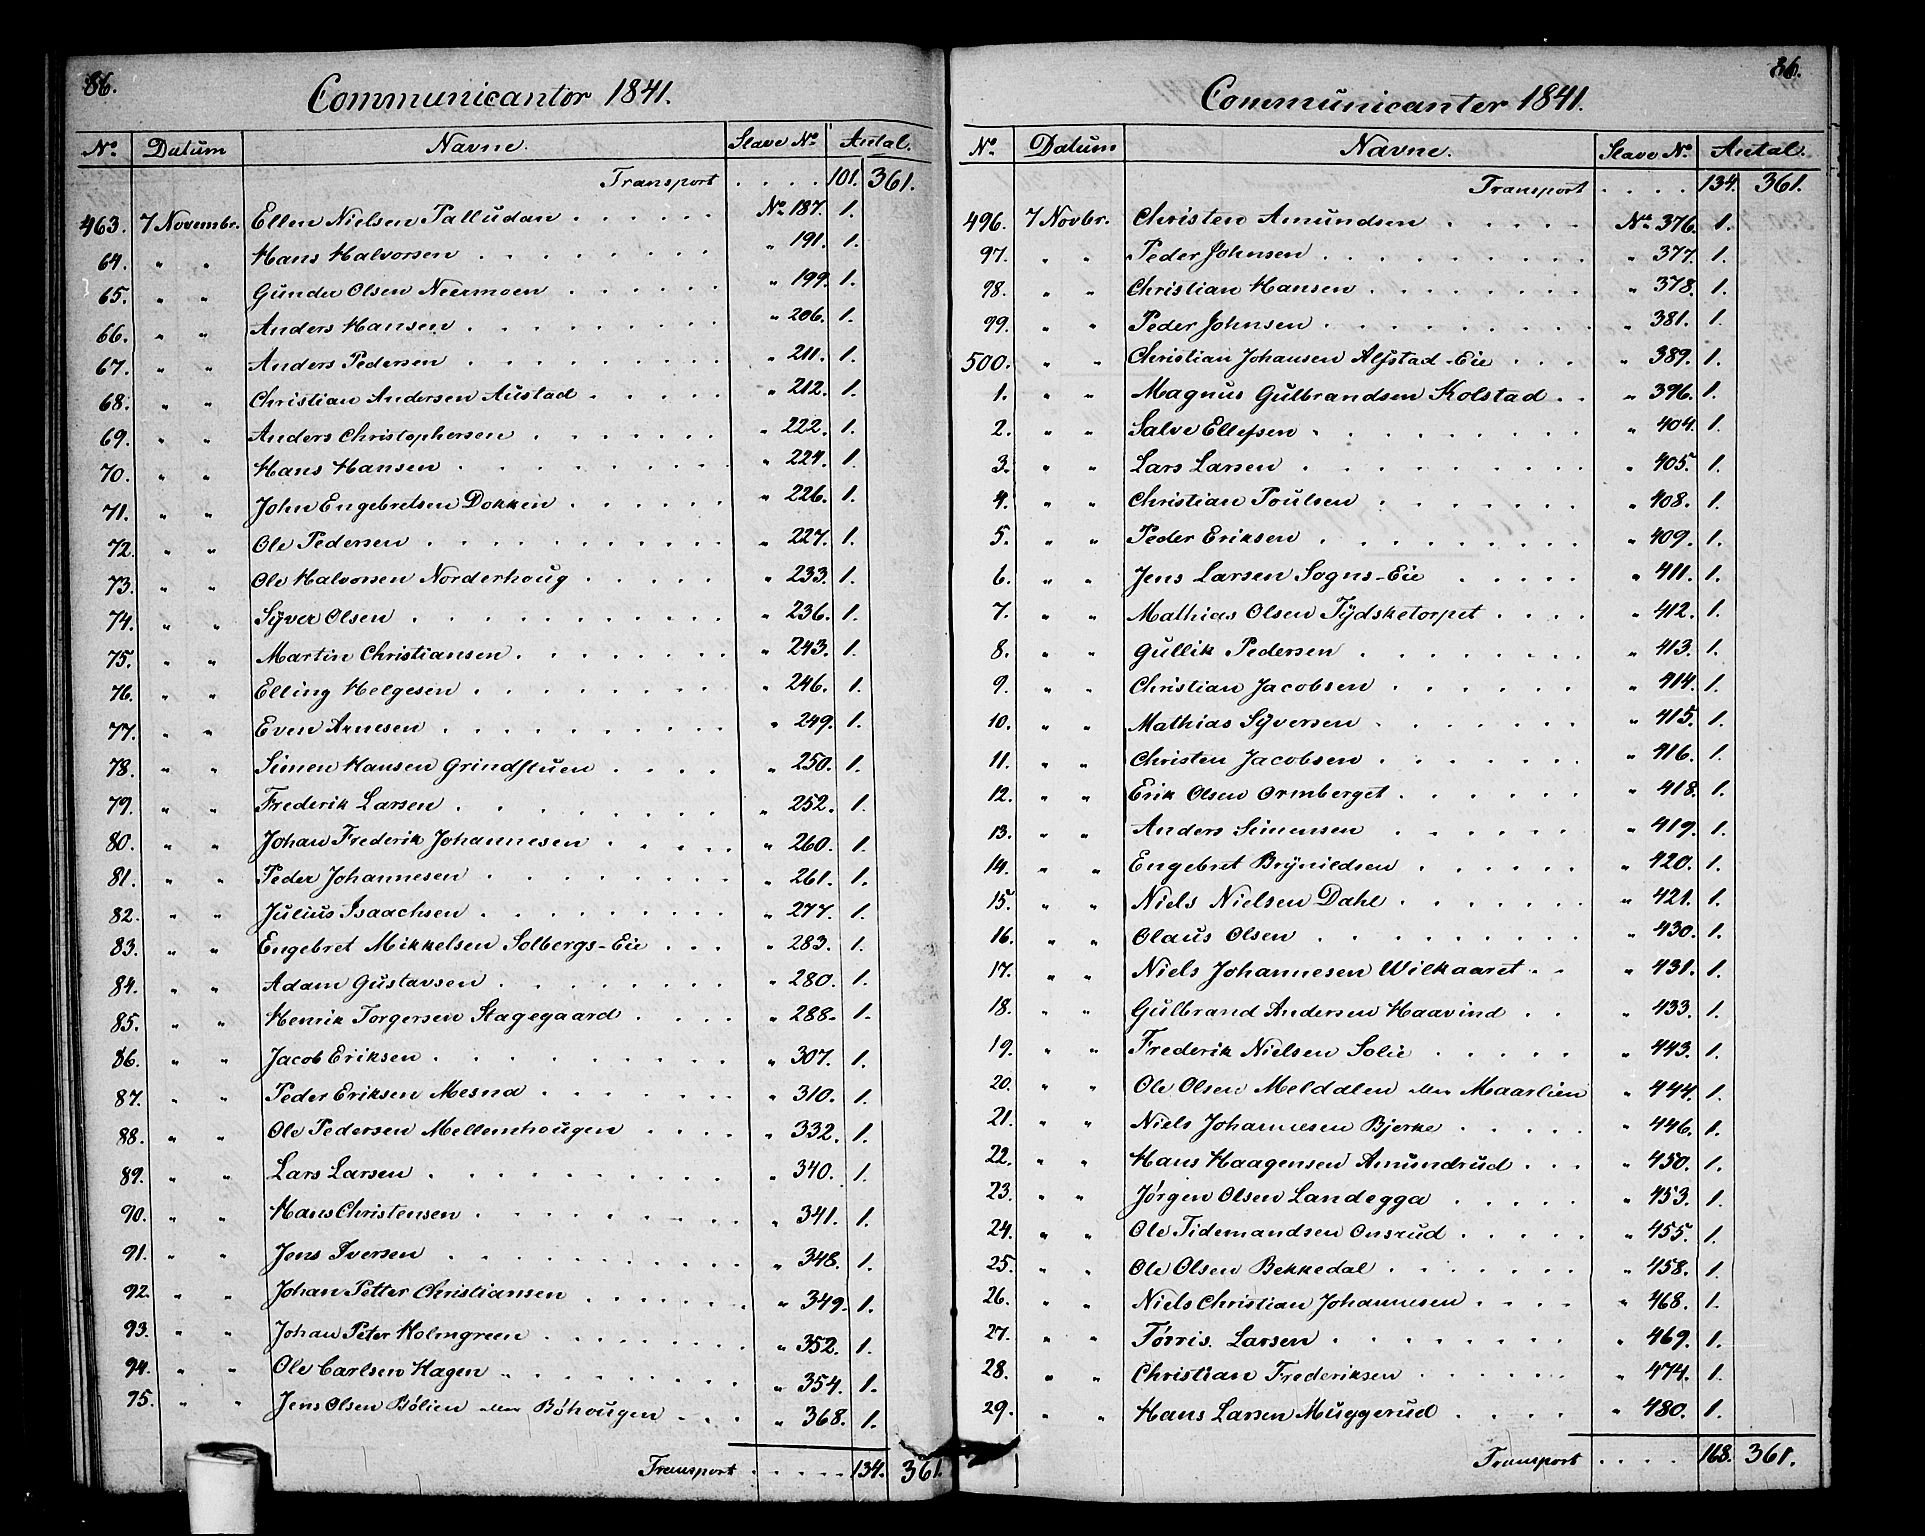 86.
Communicanter 1841.
No. Datum Navne. Slave No. Antal.
Transport . . . . 101. 361.
463. 7 Novembr. Ellen Nielsen Palludan . . . . . . No. 187. 1.
64. " " Hans Halvorsen . . . . . . . . " 191. 1.
65. " " Gunder Olsen Neermoen . . . . . . " 199. 1.
66. " " Anders Hansen . . . . . . . . . " 206. 1.
67. " " Anders Pedersen . . . . . . . . " 211. 1.
68. " " Christian Andersen Austad . . . . . " 212. 1.
69. " " Anders Christophersen . . . . . . . " 222. 1.
70. " " Hans Hansen . . . . . . . . . " 224. 1.
71. " " John Engebretsen Dokken . . . . . . " 226. 1.
72. " " Ole Pedersen . . . . . . . . . . " 227. 1.
73. " " Ole Halvorsen Norderhoug . . . . . " 233. 1.
74. " " Syver Olsen . . . . . . . . . . " 236. 1.
75. " " Martin Christiansen . . . . . . . . " 243. 1.
76. " " Elling Helgesen . . . . . . . . " 246. 1.
77. " " Even Arnesen . . . . . . . . . " 249. 1.
78. " " Simen Hansen Grindstuen . . . . " 250. 1.
79. " " Frederik Larsen . . . . . . . . " 252. 1.
80. " " Johan Frederik Johannesen . . . . . " 260. 1.
81. " " Peder Johannesen . . . . . . . . " 261. 1.
82. " " Julius Isaachsen . . . . . . . . . " 277. 1.
83. " " Engebret Mikkelsen Solbergs-Eie . . . " 283. 1.
84. " " Adam Gustavsen . . . . . . . . " 280. 1.
85. " " Henrik Torgersen Stagegaard . . . . " 288. 1.
86. " " Jacob Eriksen . . . . . . . . . " 307. 1.
87. " " Peder Eriksen Mesna . . . . . . . " 310. 1.
88. " " Ole Pedersen Mellemhougen . . . . " 332. 1.
89. " " Lars Larsen . . . . . . . . . " 340. 1.
90. " " Hans Christensen . . . . . . . . " 341. 1.
91. " " Jens Iversen . . . . . . . . . " 348. 1.
92. " " Johan Petter Christiansen . . . . . . " 349. 1.
93. " " Johan Peter Holmgreen . . . . . . " 352. 1.
94. " " Ole Carlsen Hagen . . . . . . . . " 354. 1.
75. " " Jens Olsen Bølien eller Bøhougen . . . " 368. 1.
Transport . . . . . 134. 361.
86.
Communicanter 1841.
No. Datum Navne. Slave No. Antal.
Transport . . . . 134. 361.
496. 7 Novbr. Christen Amundsen . . . . . No. 376. 1.
97. " " Peder Johnsen . . . . . . . . . " 377. 1.
98. " " Christian Hansen . . . . . . . . " 378. 1.
99. " " Peder Johnsen . . . . . . . . . " 381. 1.
500. " " Christian Johansen Alfstad-Eie . . . " 389. 1.
1. " " Magnus Gulbrandsen Kolstad . . " 396. 1.
2. " " Salve Ellefsen . . . . . . . . . " 404. 1.
3. " " Lars Larsen . . . . . . . . . " 405. 1.
4. " " Christian Poulsen . . . . . . . " 408. 1.
5. " " Peder Eriksen . . . . . . . . . " 409. 1.
6. " " Jens Larsen Sogns-Eie . . . . . " 411. 1.
7. " " Mathias Olsen Tydsketorpet . . . . " 412. 1.
8. " " Gullik Pedersen . . . . . . . " 413. 1.
9. " " Christian Jacobsen . . . . . . " 414. 1.
10. " " Mathias Syversen . . . . . . . " 415. 1.
11. " " Christen Jacobsen . . . . . . . " 416. 1.
12. " " Erik Olsen Ormberget . . . . . . " 418. 1.
13. " " Anders Simensen . . . . . . " 419. 1.
14. " " Engebret Brynildsen . . . . . . " 420. 1.
15. " " Niels Nielsen Dahl . . . . . . . " 421. 1.
16. " " Olaus Olsen . . . . . . . . . " 430. 1.
17. " " Niels Johannesen Wilkaaret . . " 431. 1.
18. " " Gulbrand Andersen Haavind . . " 433. 1.
19. " " Frederik Nielsen Solie . . . . . " 443. 1.
20. " " Ole Olsen Melddlen eller Maarlien " 444. 1.
21. " " Niels Johannesen Bjerke . . . . . " 446. 1.
22. " " Hans Haagensen Amundrud . . . " 450. 1.
23. " " Jørgen Olsen Landegga . . . . . " 453. 1.
24. " " Ole Tidemandsen Onsrud . . . . . " 455. 1.
25. " " Ole Olsen Bekkedal . . . . . . . " 458. 1.
26. " " Niels Christian Johannesen . . . . " 468. 1.
27. " " Tørris. Larsen . . . . . . . . " 469. 1.
28. " " Christian Frederiksen . . . . . . " 474. 1.
29. " " Hans Larsen Muggerud . . . . . " 480. 1.
Transport . . . . 168. 361.